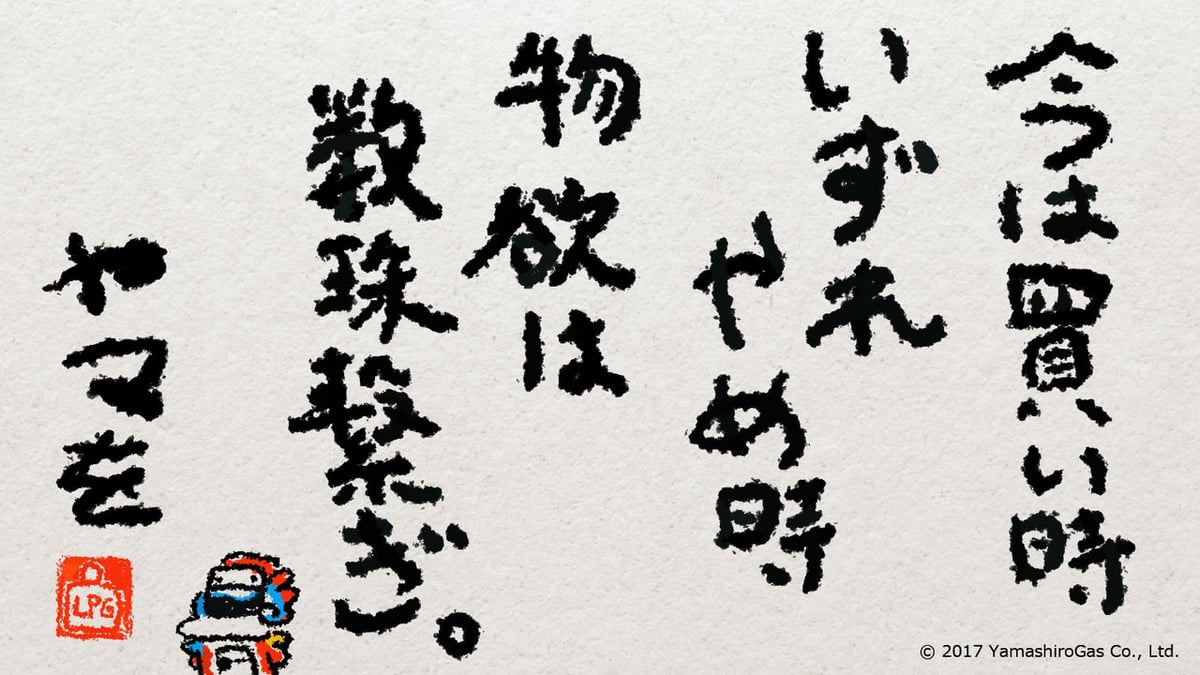 今は買い時
いずれ
やめ時
物欲は
数珠繋ぎ。
やマを
LPG
© 2017 YamashiroGas Co., Ltd.